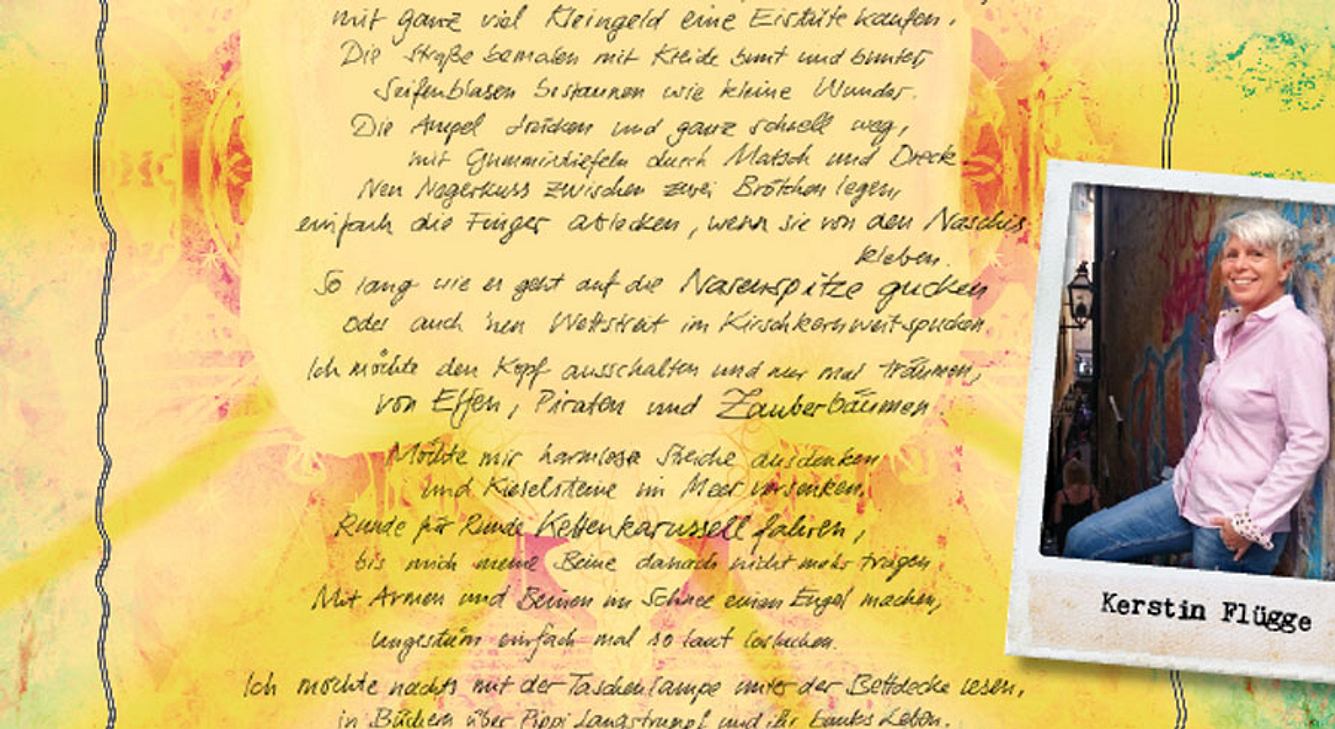 mit ganz viel Kleingeld eine Eistüte kaufen.
Die Straße bemalen mit Kreide bunt und bunter,
Seifenblasen bestaunen wie kleine Wunder.
Die Ampel drücken und ganz schnell weg,
mit Gummistiefeln durch Matsch und Dreck.
Nen Negerkuss zwischen zwei Brötchen legen,
einfach die Finger ablecken, wenn sie von den Naschis
kleben.
So lang wie es geht auf die Nasenspitze gucken
oder auch 'nen Wettstreit im Kirschkernweitspucken.
Ich möchte den Kopf ausschalten und nur mal träumen,
von Elfen, Piraten und Zauberbäumen.
Möchte mir harmlose Streiche ausdenken
und Kieselsteine im Meer versenken.
Runde für Runde Kettenkarussell fahren,
bis mich meine Beine danach nicht mehr tragen
Mit Armen und Beinen im Schnee einen Engel machen,
ungestüm einfach mal so laut loslachen.
Ich möchte nachts mit der Taschenlampe unter der Bettdecke lesen,
in Büchern über Pippi Langstrumpf und ihr buntes Leben.
Kerstin Flügge